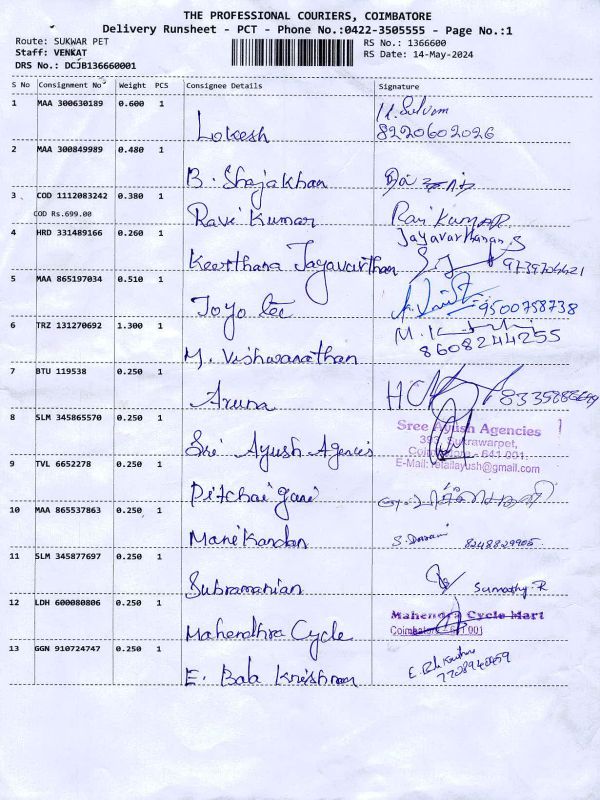 THE PROFESSIONAL COURIERS, COIMBATORE
Delivery Runsheet - PCT - Phone No.:0422-3505555 - Page No.:1
Route: SUKWAR PET
RS No.: 1366600
Staff: VENKAT
RS Date: 14-May-2024
DRS No.: DCJB136660001
S No Consignment No Weight PCS Consignee Details Signature
1 MAA 300630189 0.600 1 Lokesh
8220602026
2 MAA 300849989 0.480 1 B. Shajakhan
3 COD 1112083242 0.380 1 Ravi Kumar Ravi Kumar
COD Rs.699.00
4 HRD 331489166 0.260 1 Keerthana Jayavarthan Jayavarthanan.S
9739704421
5 MAA 865197034 0.510 1 Toyo tec 9500758738
6 TRZ 131270692 1.300 1 M. Vishwanathan
8608244255
7 BTU 119538 0.250 1 Aruna
8 SLM 345865570 0.250 1 Sri Ayush Agencis
Sree Ayush Agencies
Sukrawarpet,
Coimbatore - 641 001
E-Mail: retailayush@gmail.com
9 TVL 6652278 0.250 1 Pitchai gani
10 MAA 865537863 0.250 1 Manikandan 8248829905
11 SLM 345877697 0.250 1 Subramanian Sumathy.R
12 LDH 600080806 0.250 1 Mahendhra Cycle
Mahendra Cycle Mart
Coimbatore - 641 001
13 GGN 910724747 0.250 1 E. Bala Krishnan